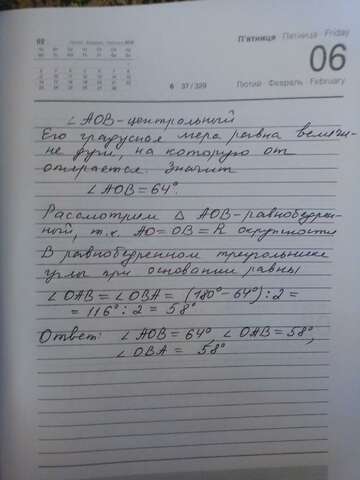 П'ятниця Пятница Friday
06
6 37 / 329
Лютий Февраль February
∠АОВ-центральный
Его градусная мера равна величи-
не дуги, на которую от
опирается. Значит
∠АОВ=64°.
Рассмотрим △ АОВ-равнобедрен-
ный, т.к. АО=ОВ=R окружности
В равнобедренном треугольнике
углы при основании равны
∠ОАВ=∠ОВА = (180°-64°):2=
= 116°:2 = 58°
Ответ: ∠АОВ=64°, ∠ОАВ=58°,
∠ОВА = 58°